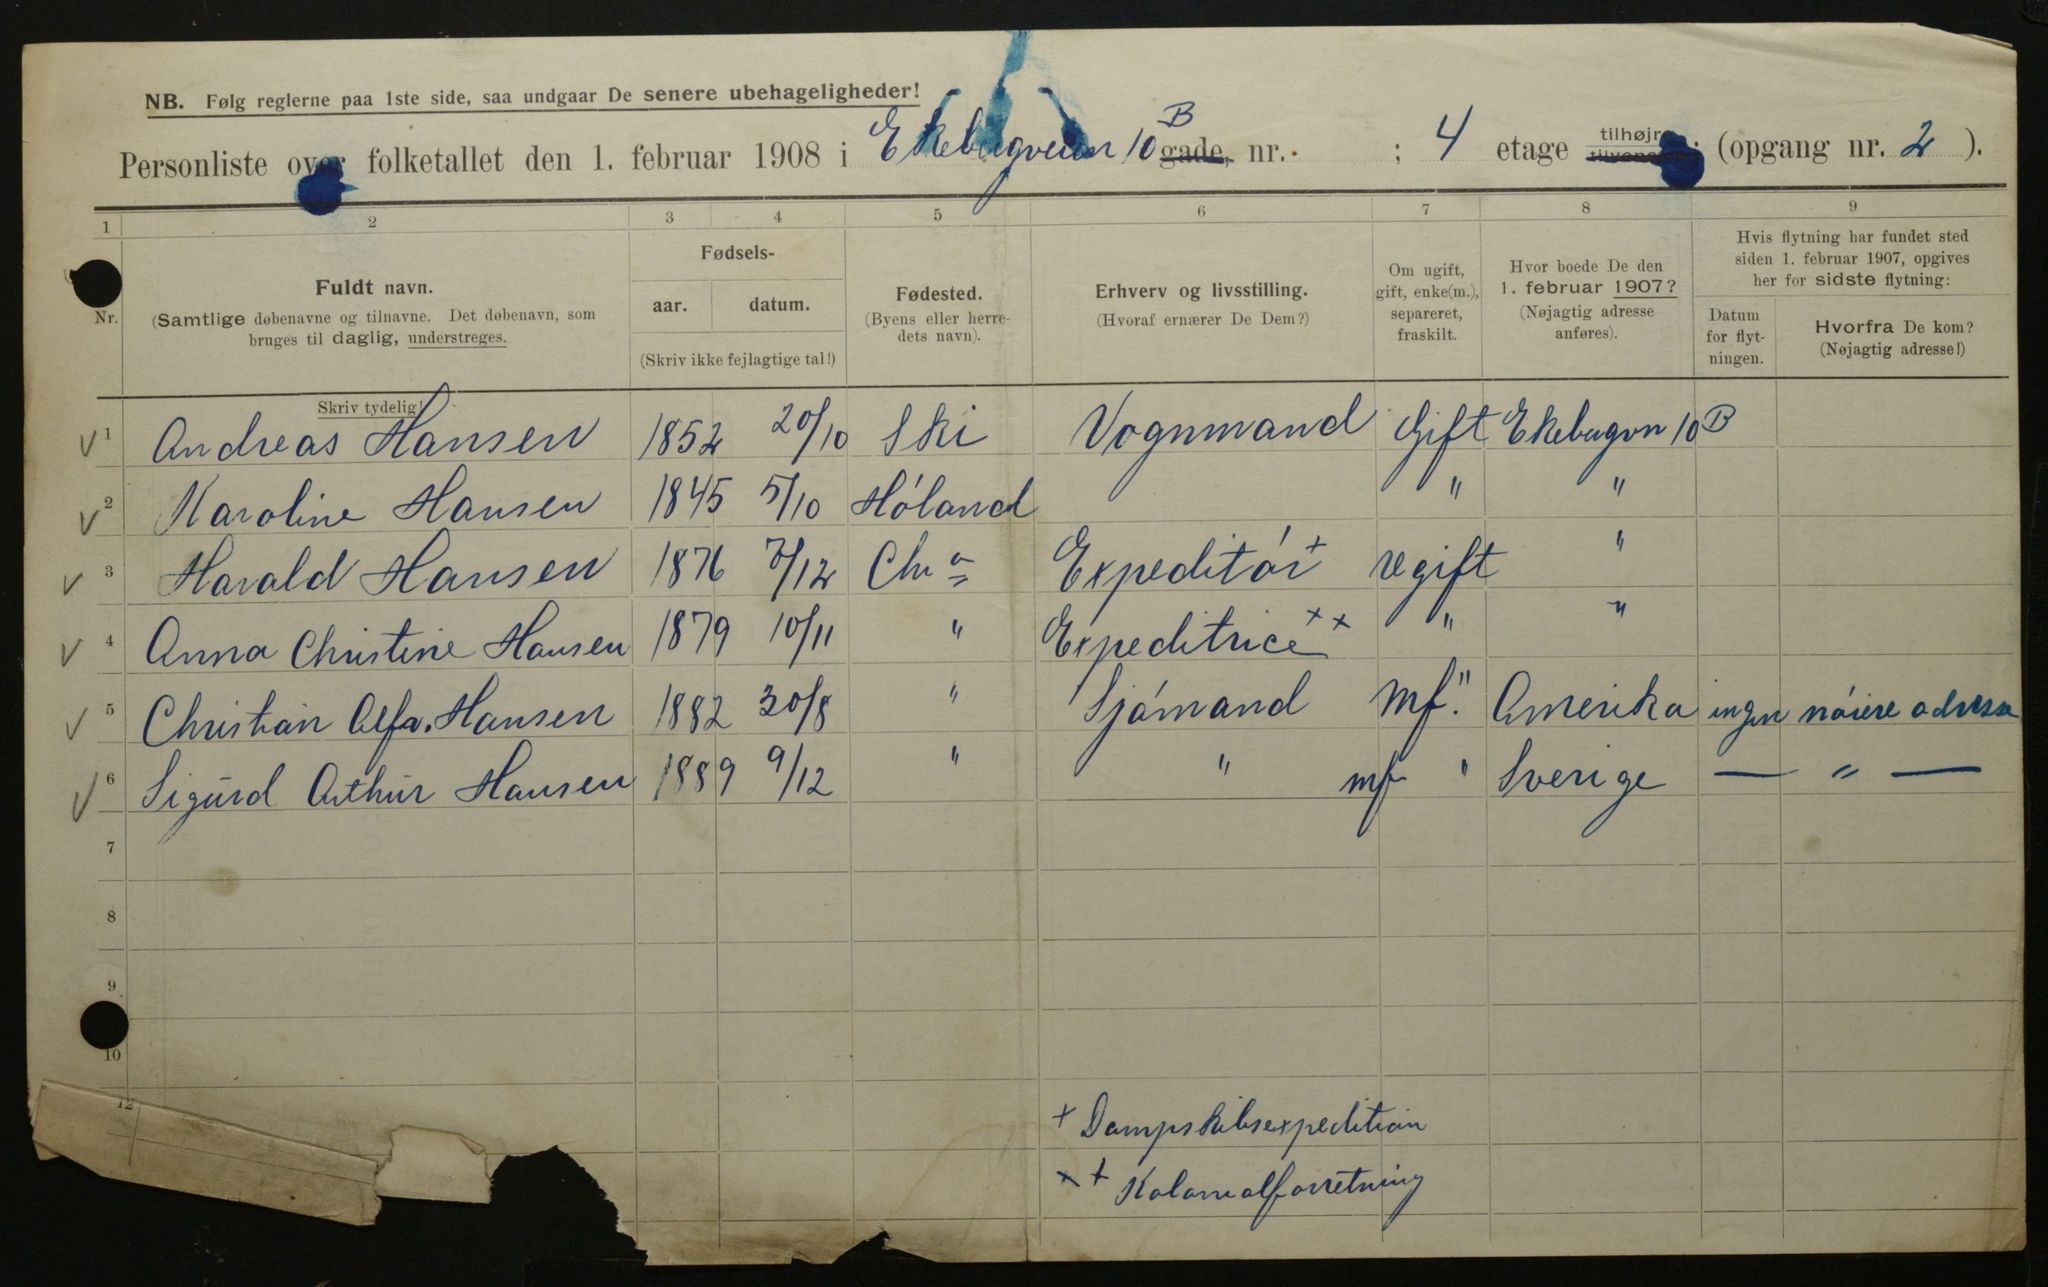 NB. Følg reglerne paa 1ste side, saa undgaar De senere ubehageligheder!
Personliste over folketallet den 1. februar 1908 i Ekebergveien 10 B gade, nr. ; 4 etage tilhøjre tilvenstre; (opgang nr. 2 ).
1 2 3 4 5 6 7 8 9
Nr.
Fuldt navn.
(Samtlige døbenavne og tilnavne. Det døbenavn, som
bruges til daglig, understreges.
Skriv tydelig!
Fødsels-
aar. datum.
(Skriv ikke fejlagtige tal!)
Fødested.
(Byens eller herre-
dets navn).
Erhverv og livsstilling.
(Hvoraf ernærer De Dem?)
Om ugift,
gift, enke(m.),
separeret,
fraskilt.
Hvor boede De den
1. februar 1907?
(Nøjagtig adresse
anføres).
Hvis flytning har fundet sted
siden 1. februar 1907, opgives
her for sidste flytning:
Datum
for flyt-
ningen.
Hvorfra De kom?
(Nøjagtig adresse!)
1 Andreas Hansen 1852 20/10 Ski Vognmand Gift Ekebergvn 10 B
2 Karoline Hansen 1845 5/10 Høland " "
3 Harald Hansen 1876 7/12 Chra Expeditør + Ugift "
4 Anna Christine Hansen 1879 10/11 " Expeditrice ×× " "
5 Christian Alfr. Hansen 1882 30/8 " Sjømand mf. " Amerika ingen nøiere adresse
6 Sigurd Arthur Hansen 1889 9/12 " " mf " Sverige — " —
7
8
9
10
12
+ Dampskibsexpedition
×+ Kolonialforretning